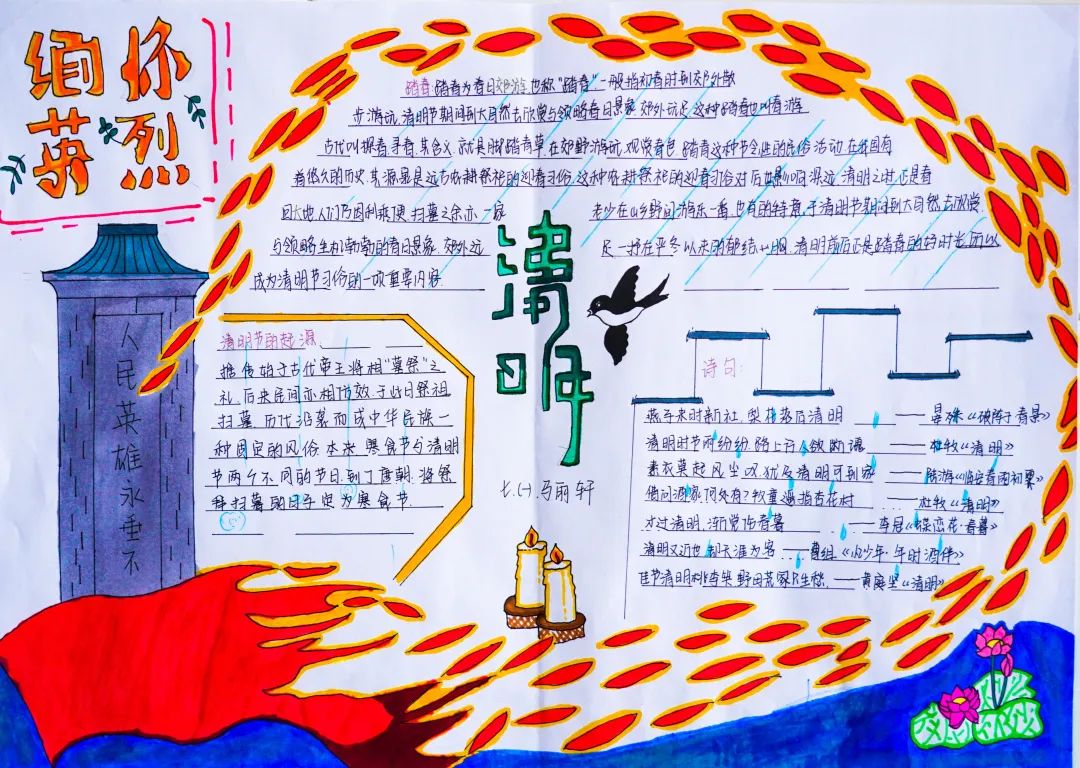 缅怀
英烈
人民英雄永垂不
踏青:踏青为春日郊游,也称"踏春",一般指初春时到郊外散
步游玩,清明节期间到大自然去欣赏与领略春日景象,郊外远足,这种踏青也叫春游
古代叫探春、寻春,其含义,就是脚踏青草,在郊野游玩,观赏春色,踏青这种节令性的民俗活动,在我国有
着悠久的历史,其源是远古农耕祭祀的迎春习俗,这种农耕祭祀的迎春习俗对后世影响深远,清明之时,正是春
回大地,人们乃因利乘便,扫墓之余亦一家
老少在山乡野间游乐一番,也有的特意于清明节期间到大自然去观赏
与领略生机勃勃的春日景象,郊外远
足一抒在严冬以来的郁结心胸,清明前后正是踏青的好时光,所以
成为清明节习俗的一项重要内容.
清明
清明节的起源:
据传始于古代帝王将相"墓祭"之
礼,后来民间亦相仿效,于此日祭祖
扫墓,历代沿袭而成中华民族一
种固定的风俗.本来,寒食节与清明
节两个不同的节日,到了唐朝,将祭
拜扫墓的日子定为寒食节.
七.(一).马丽轩
诗句:
燕子来时新社,梨花落后清明 ——晏殊《破阵子·春景》
清明时节雨纷纷,路上行人欲断魂 ——杜牧《清明》
素衣莫起风尘叹,犹及清明可到家 ——陆游《临安春雨初霁》
借问酒家何处有?牧童遥指杏花村 ....杜牧《清明》
才过清明,渐觉伤春暮 ....——李冠《蝶恋花·春暮》
清明又近也,却天涯为客 ....曹组《忆少年·年时酒伴》
佳节清明桃李笑,野田荒冢只生愁.——黄庭坚《清明》